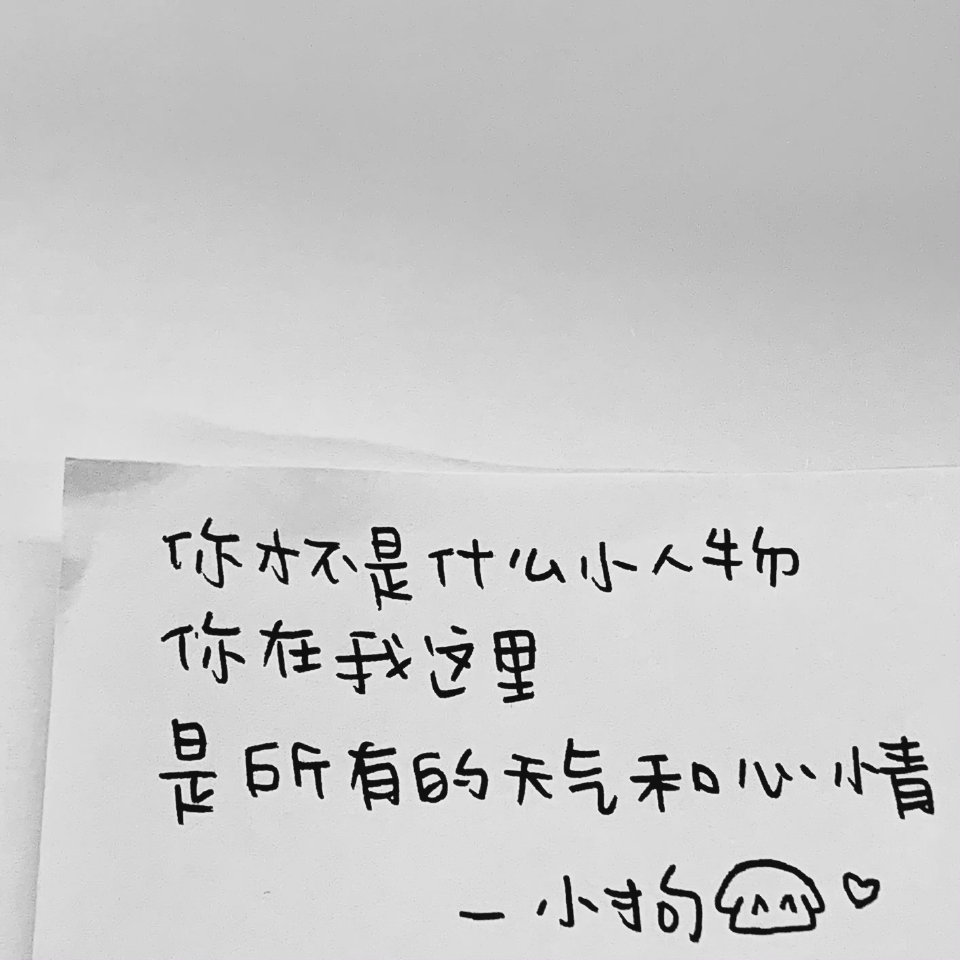 你才不是什么小人物
你在我这里
是所有的天气和心情
—小狗